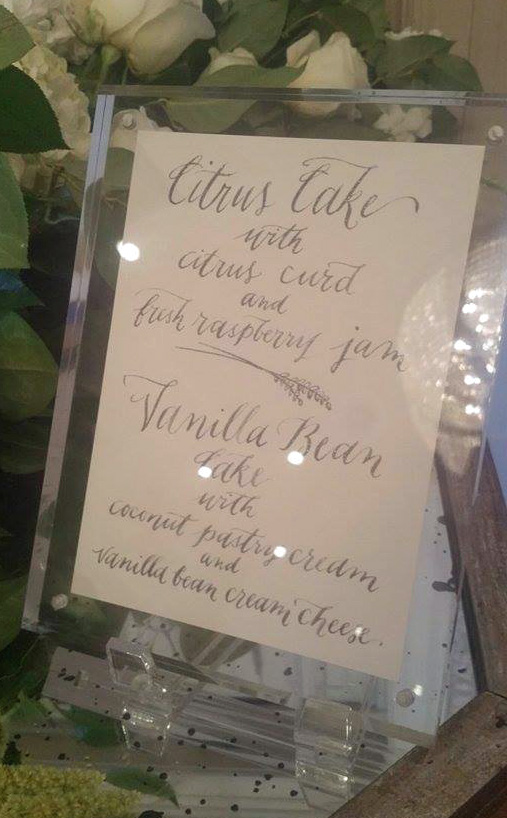 Citrus Cake
with
citrus curd
and
fresh raspberry jam
Vanilla Bean
Cake
with
coconut pastry cream
and
vanilla bean cream cheese.